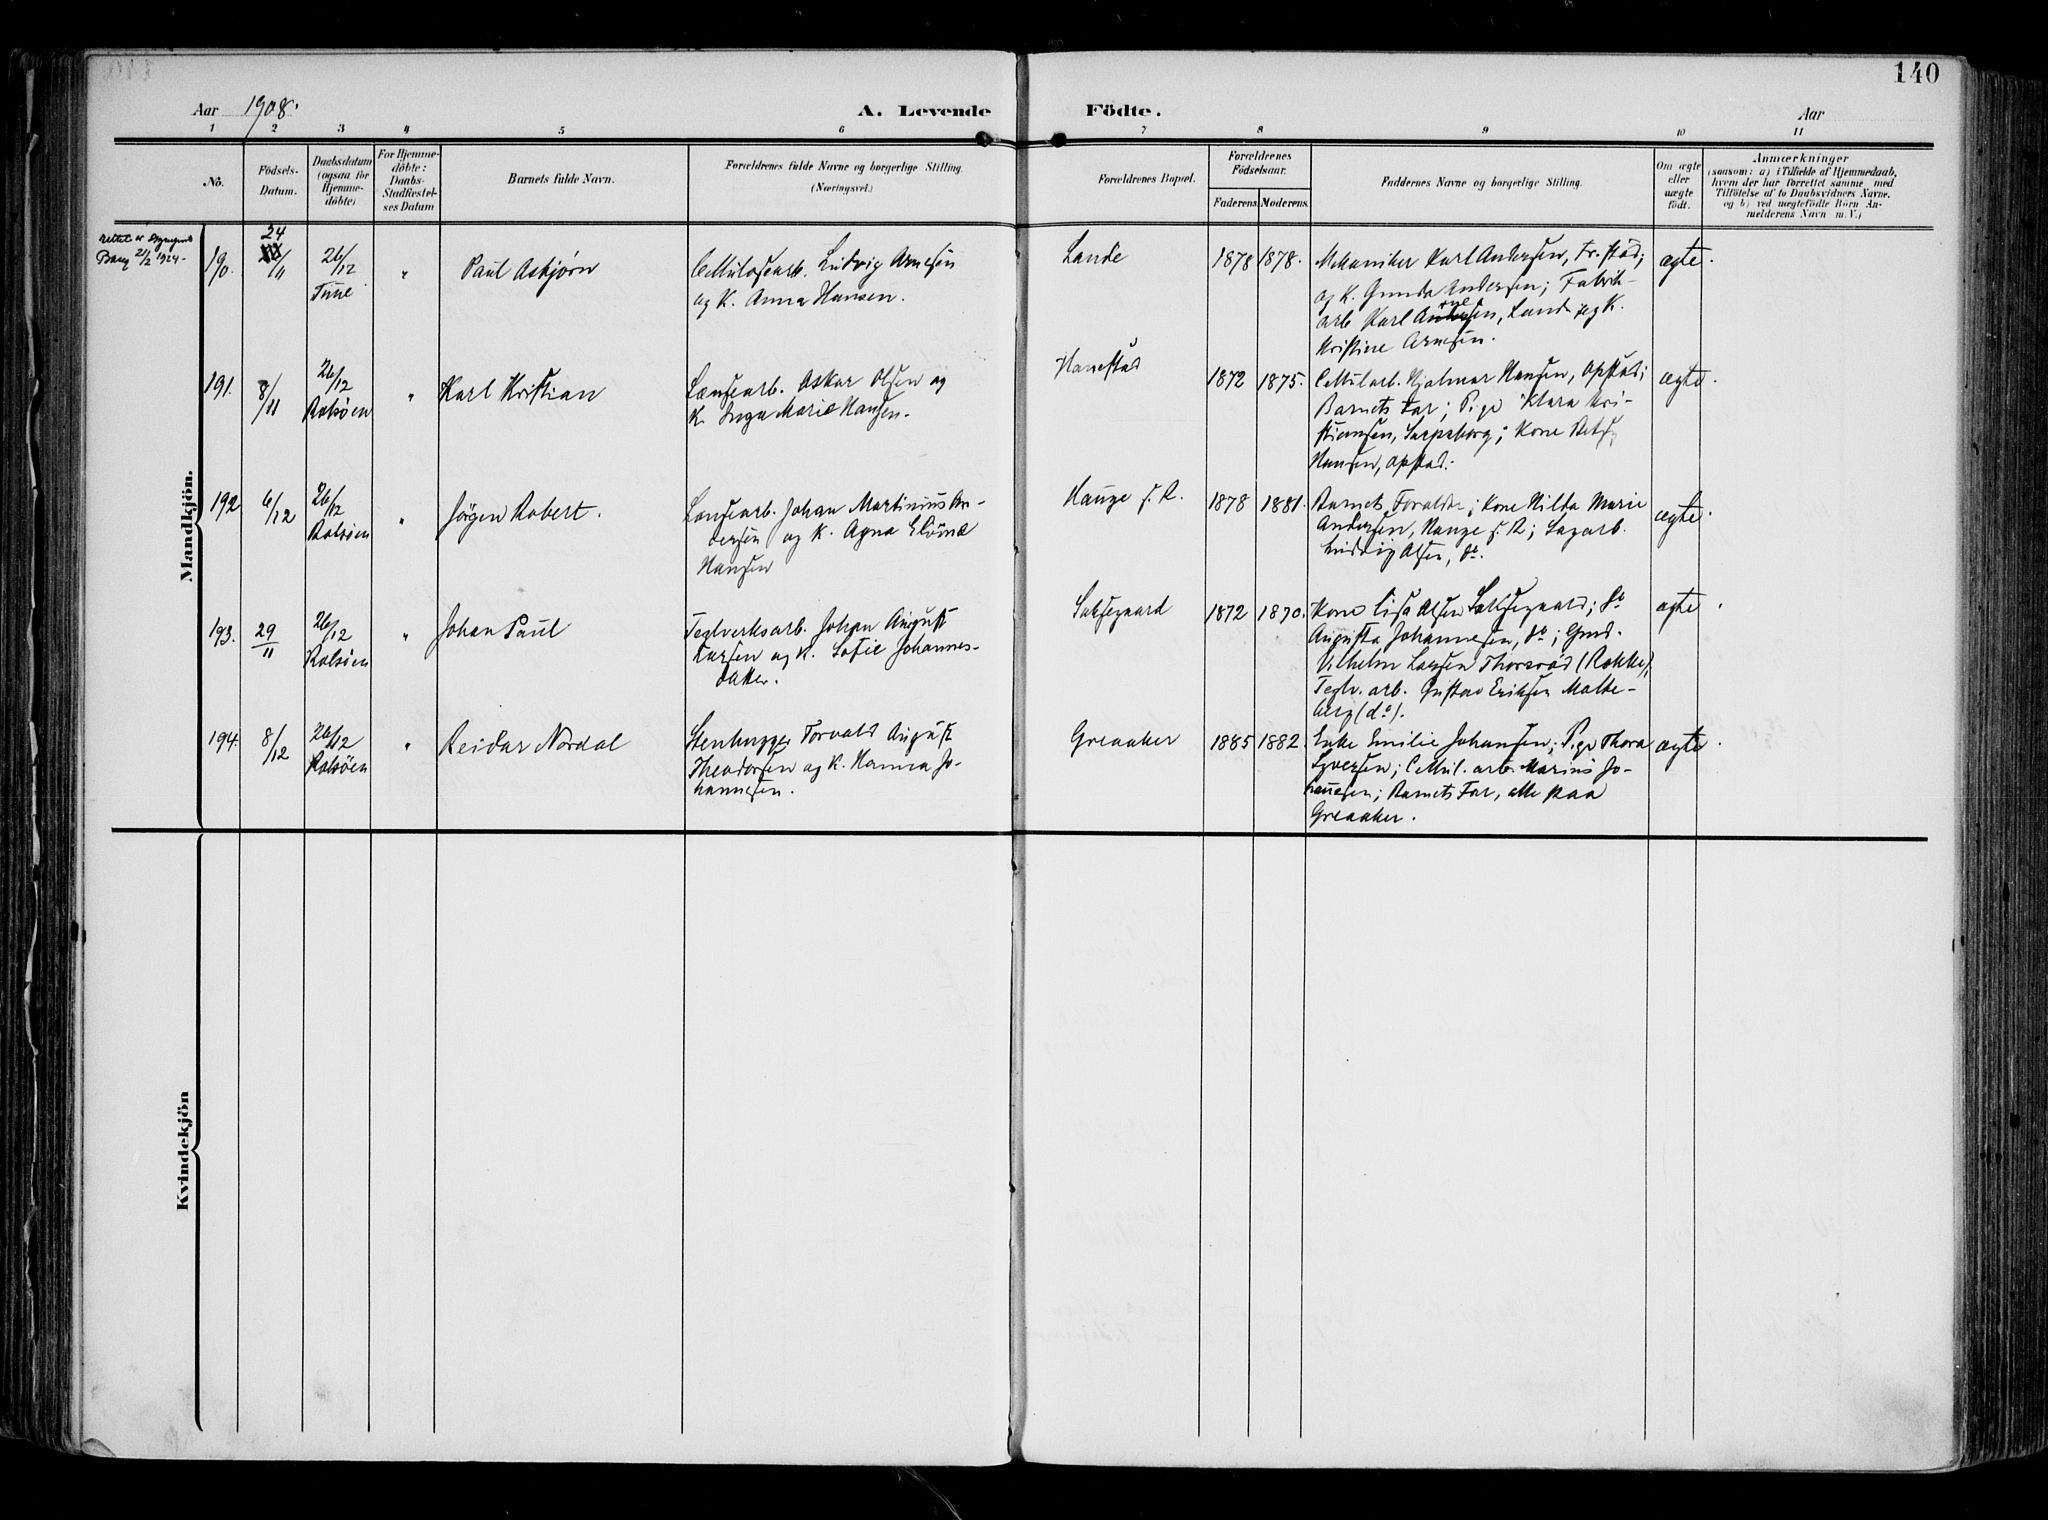 140
Aar 1908.
A. Levende Födte.
Aar
1 2 3 4 5 6 7 8 9 10 11
No.
Födsels-
Datum.
Daabsdatum
(ogsaa for
Hjemme-
döbte)
For Hjemme-
döbte:
Daabs-
Stadfæstel-
ses Datum
Barnets fulde Navn.
Forældrenes fulde Navne og borgerlige Stilling.
(Næringsvei.)
Forældrenes Bopæl.
Forældrenes
Födselsaar.
Faderens. Moderens.
Faddernes Navne og borgerlige Stilling.
Om ægte
eller
uægte
födt.
Anmærkninger
(saasom: a) i Tilfælde af Hjemmedaab,
hvem der har forrettet samme med
Tilföielse af to Daabsvidners Navne.
og b) ved uægtefödte Börn An-
melderens Navn m. V.)
Mandkjön.
rettet
21/2 1924.
190.
24
/11
26/12
Tune
"
Paul Asbjørn
Cellulosearb. Ludvig Arnesen
og K. Anna Hansen.
Lande
1878
1878.
Mekaniker Karl Andersen, Fr.stad;
og K. Gunda Andersen; Fabrik-
arb Karl Andersen, Lande og K.
Kristine Arnesen.
ægte.
191.
8/11
26/12
Rolsöen
"
Karl Kristian
Lænsearb. Oskar Olsen og
K. Inga Marie Hansen.
Hanestad
1872
1875.
Cellul.arb. Hjalmar Hansen, Opstad;
Barnets Far; Pige Klara Kri-
stiansen, Sarpsborg; Kone Betsy
Hansen, Opstad.
ægte.
192
6/12
26/12
Rolsöen
"
Jörgen Robert.
Lænsearb. Johan Martinius An-
dersen og K. Agna
Hansen
Hauge s. R.
1878
1881.
Barnets Forældre; Kone Hilda Marie
Andersen, Hauge s. R; Sagarb.
Ludvig Olsen, do.
ægte.
193.
29/11
26/12
Rolsöen
"
Johan Paul
Teglverksarb. Johan August
Larsen og K. Sofie Johannes-
datter.
Saksegaard
1872
1870.
Kone Lisa Olsen Saksegaard; do
Augusta Johannesen, do; Gmd.
Vilhelm Larsen Thorsröd (Rokke);
Teglv. arb. Gustav Eriksen Malte-
berg (do).
ægte.
194.
8/12
26/12
Rolsöen
"
Reidar Nordal
Stenhugger Torvald August
Theodorsen og K. Hanna Jo-
hannesen.
Greaaker
1885
1882.
Enke Emilie Johansen; Pige Thora
Syversen; Cellul. arb. Marius Jo-
hannesen; Barnets Far, alle paa
Greaaker.
ægte.
Kvindekjön